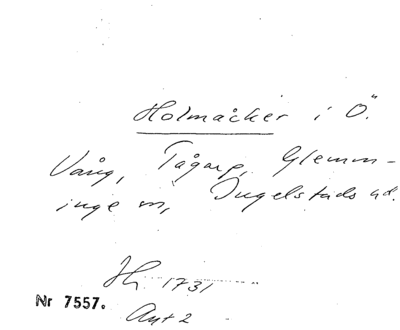 Holmåcker i Ö.
Vång, Tågarp, Glemm-
inge sn, Ingelstads hd.
Jh 1731
Nr 7557.
Ant 2